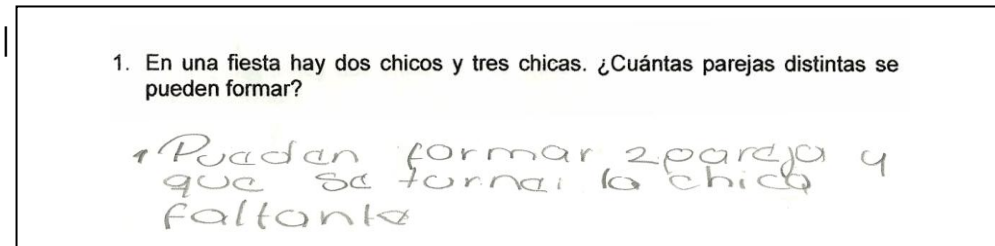 1. En una fiesta hay dos chicos y tres chicas. ¿Cuántas parejas distintas se
pueden formar?
1 Puedan formar 2 pareja y
que se turnai la chica
faltante